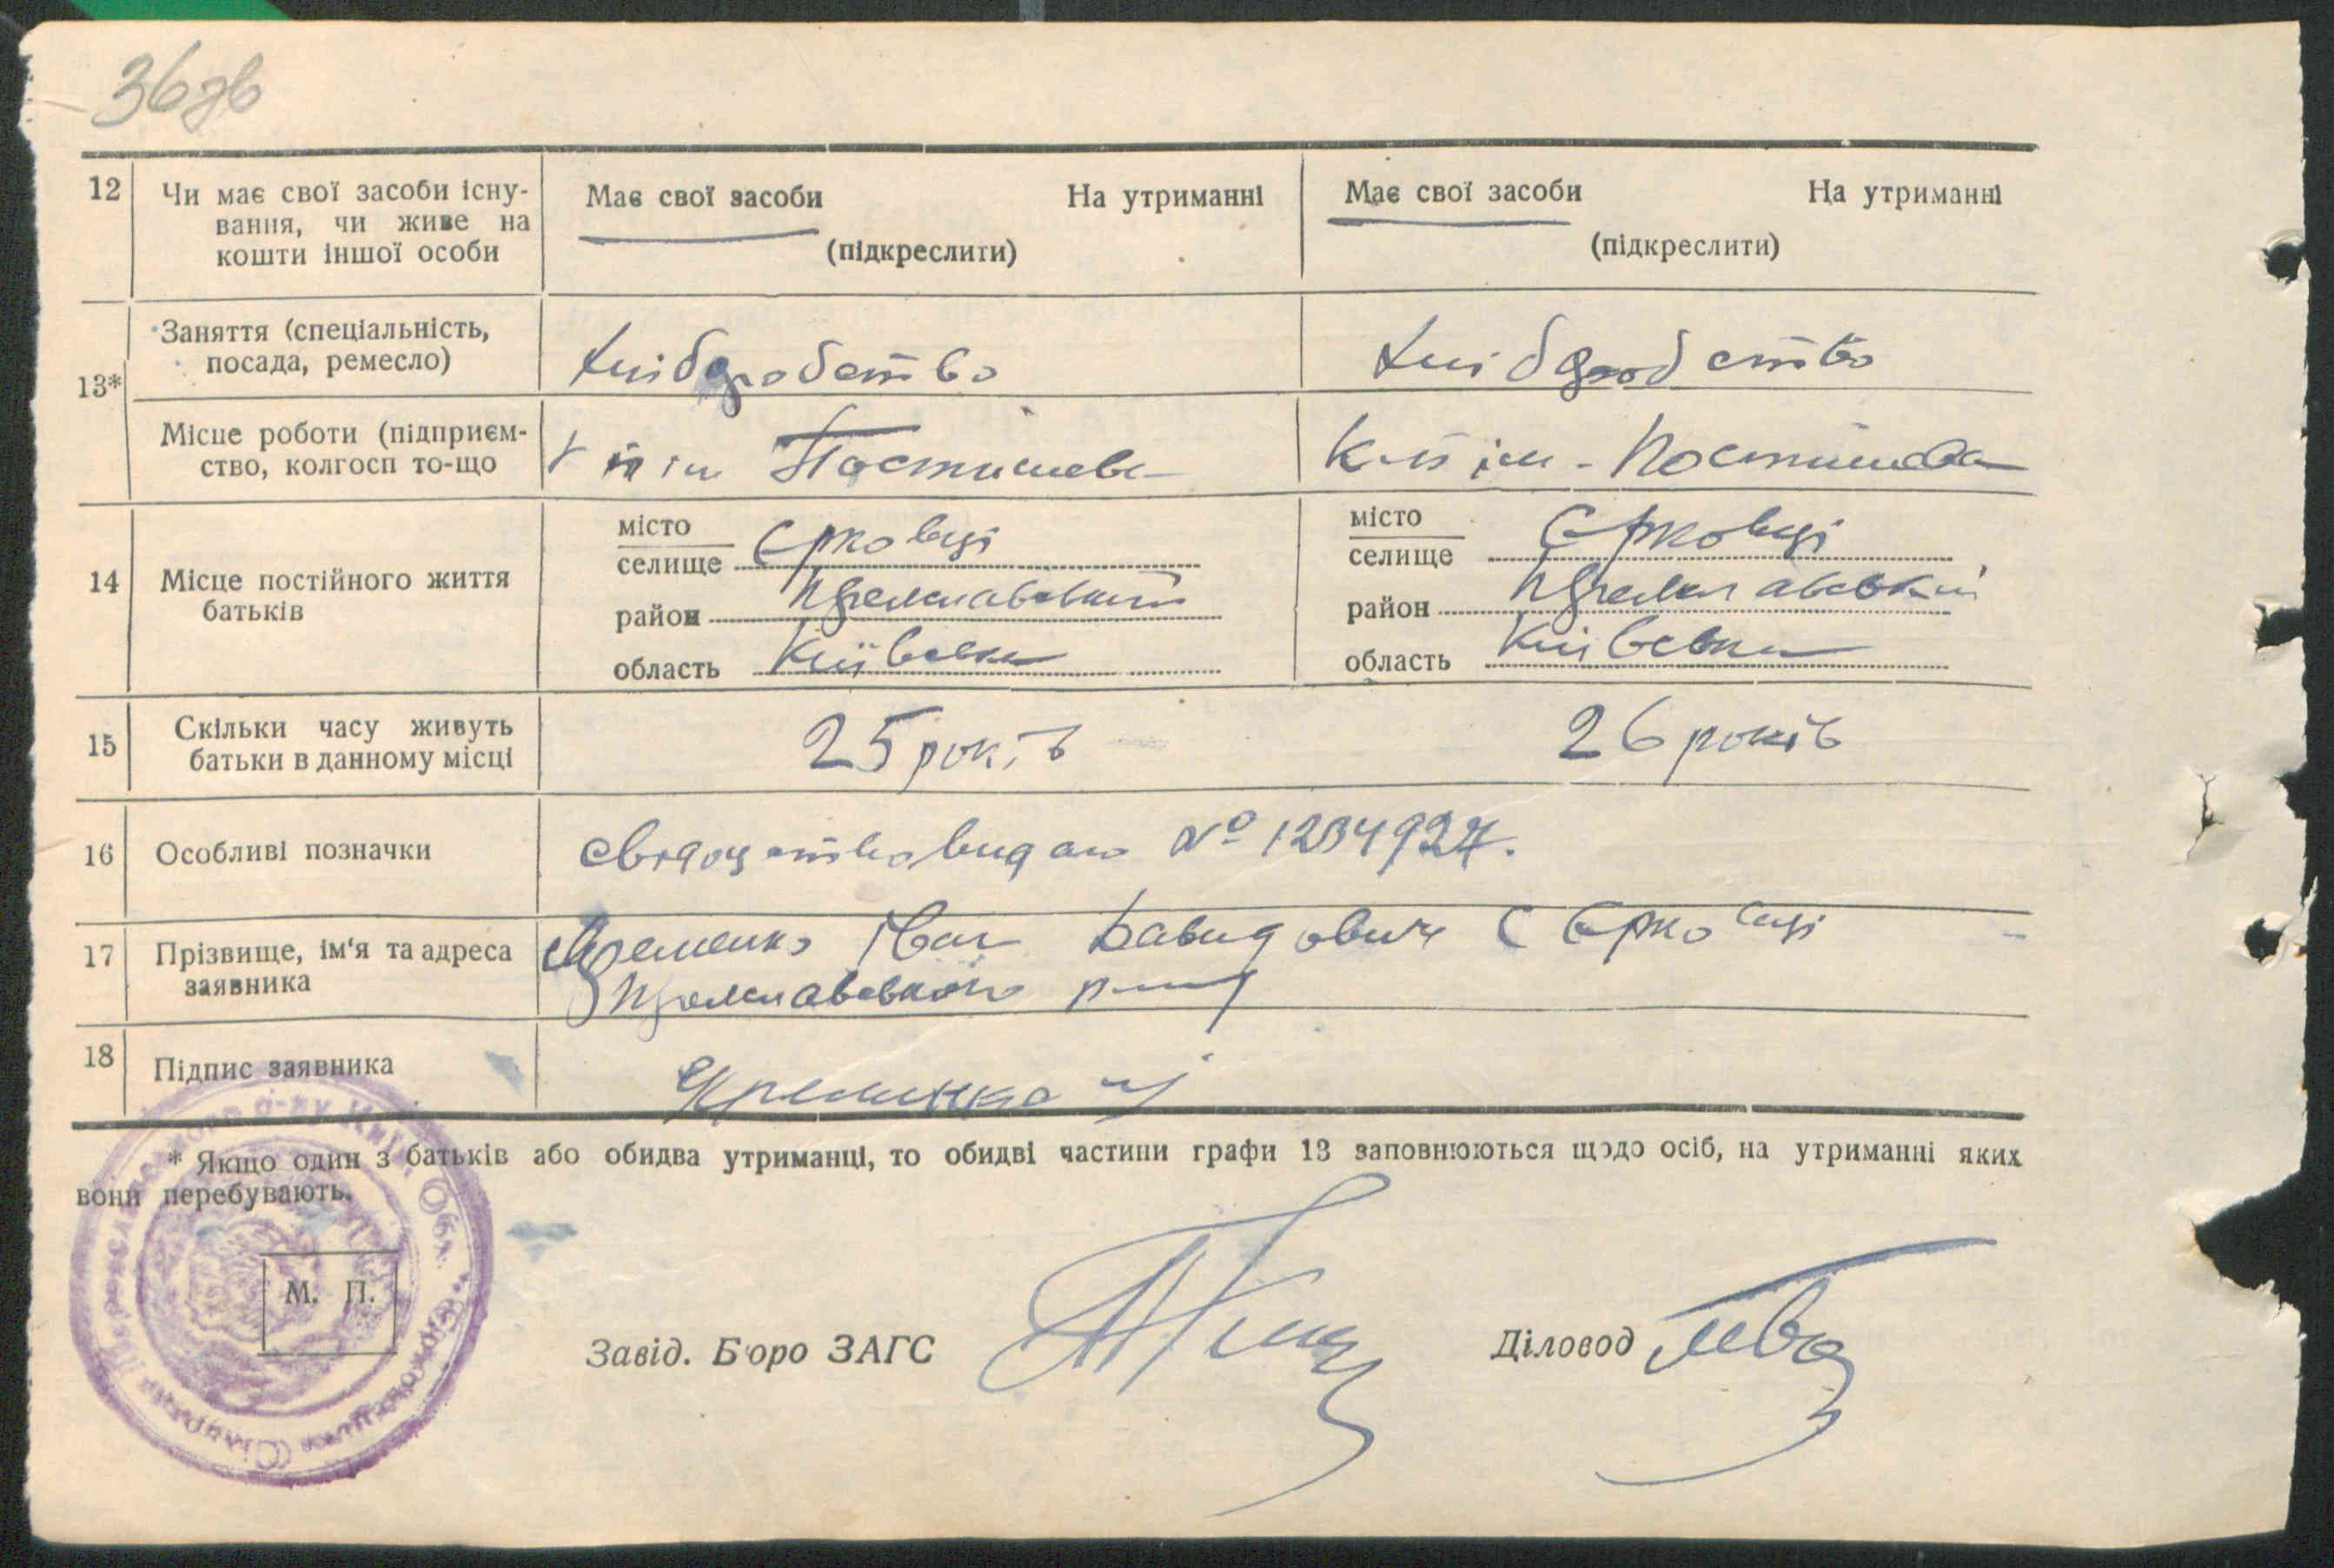 36зв
12 Чи має свої засоби існу- Має свої засоби На утриманні Має свої засоби На утриманні
вання, чи живе на
кошти іншої особи (підкреслити) (підкреслити)
Заняття (спеціальність,
посада, ремесло) хліборобство хліборобство
13*
Місце роботи (підприєм-
ство, колгосп то-що ім Постишева ім. Постишева
місто місто
селище Єрковці селище Єрковці
14 Місце постійного життя
батьків район Переяславський район Переяславський
область Київська область Київська
15 Скільки часу живуть
батьки в данному місці 25 років 26 років
16 Особливі позначки свідоцтво видано № 1234927.
17 Прізвище, ім'я та адреса Яременко Іван Давидович С Єрковці
заявника Переяславського р-ну
18 Підпис заявника
* Якщо один з батьків або обидва утриманці, то обидві частини графи 13 заповнюються щодо осіб, на утриманні яких
вони перебувають.
М. П.
Завід. Бюро ЗАГС Діловод